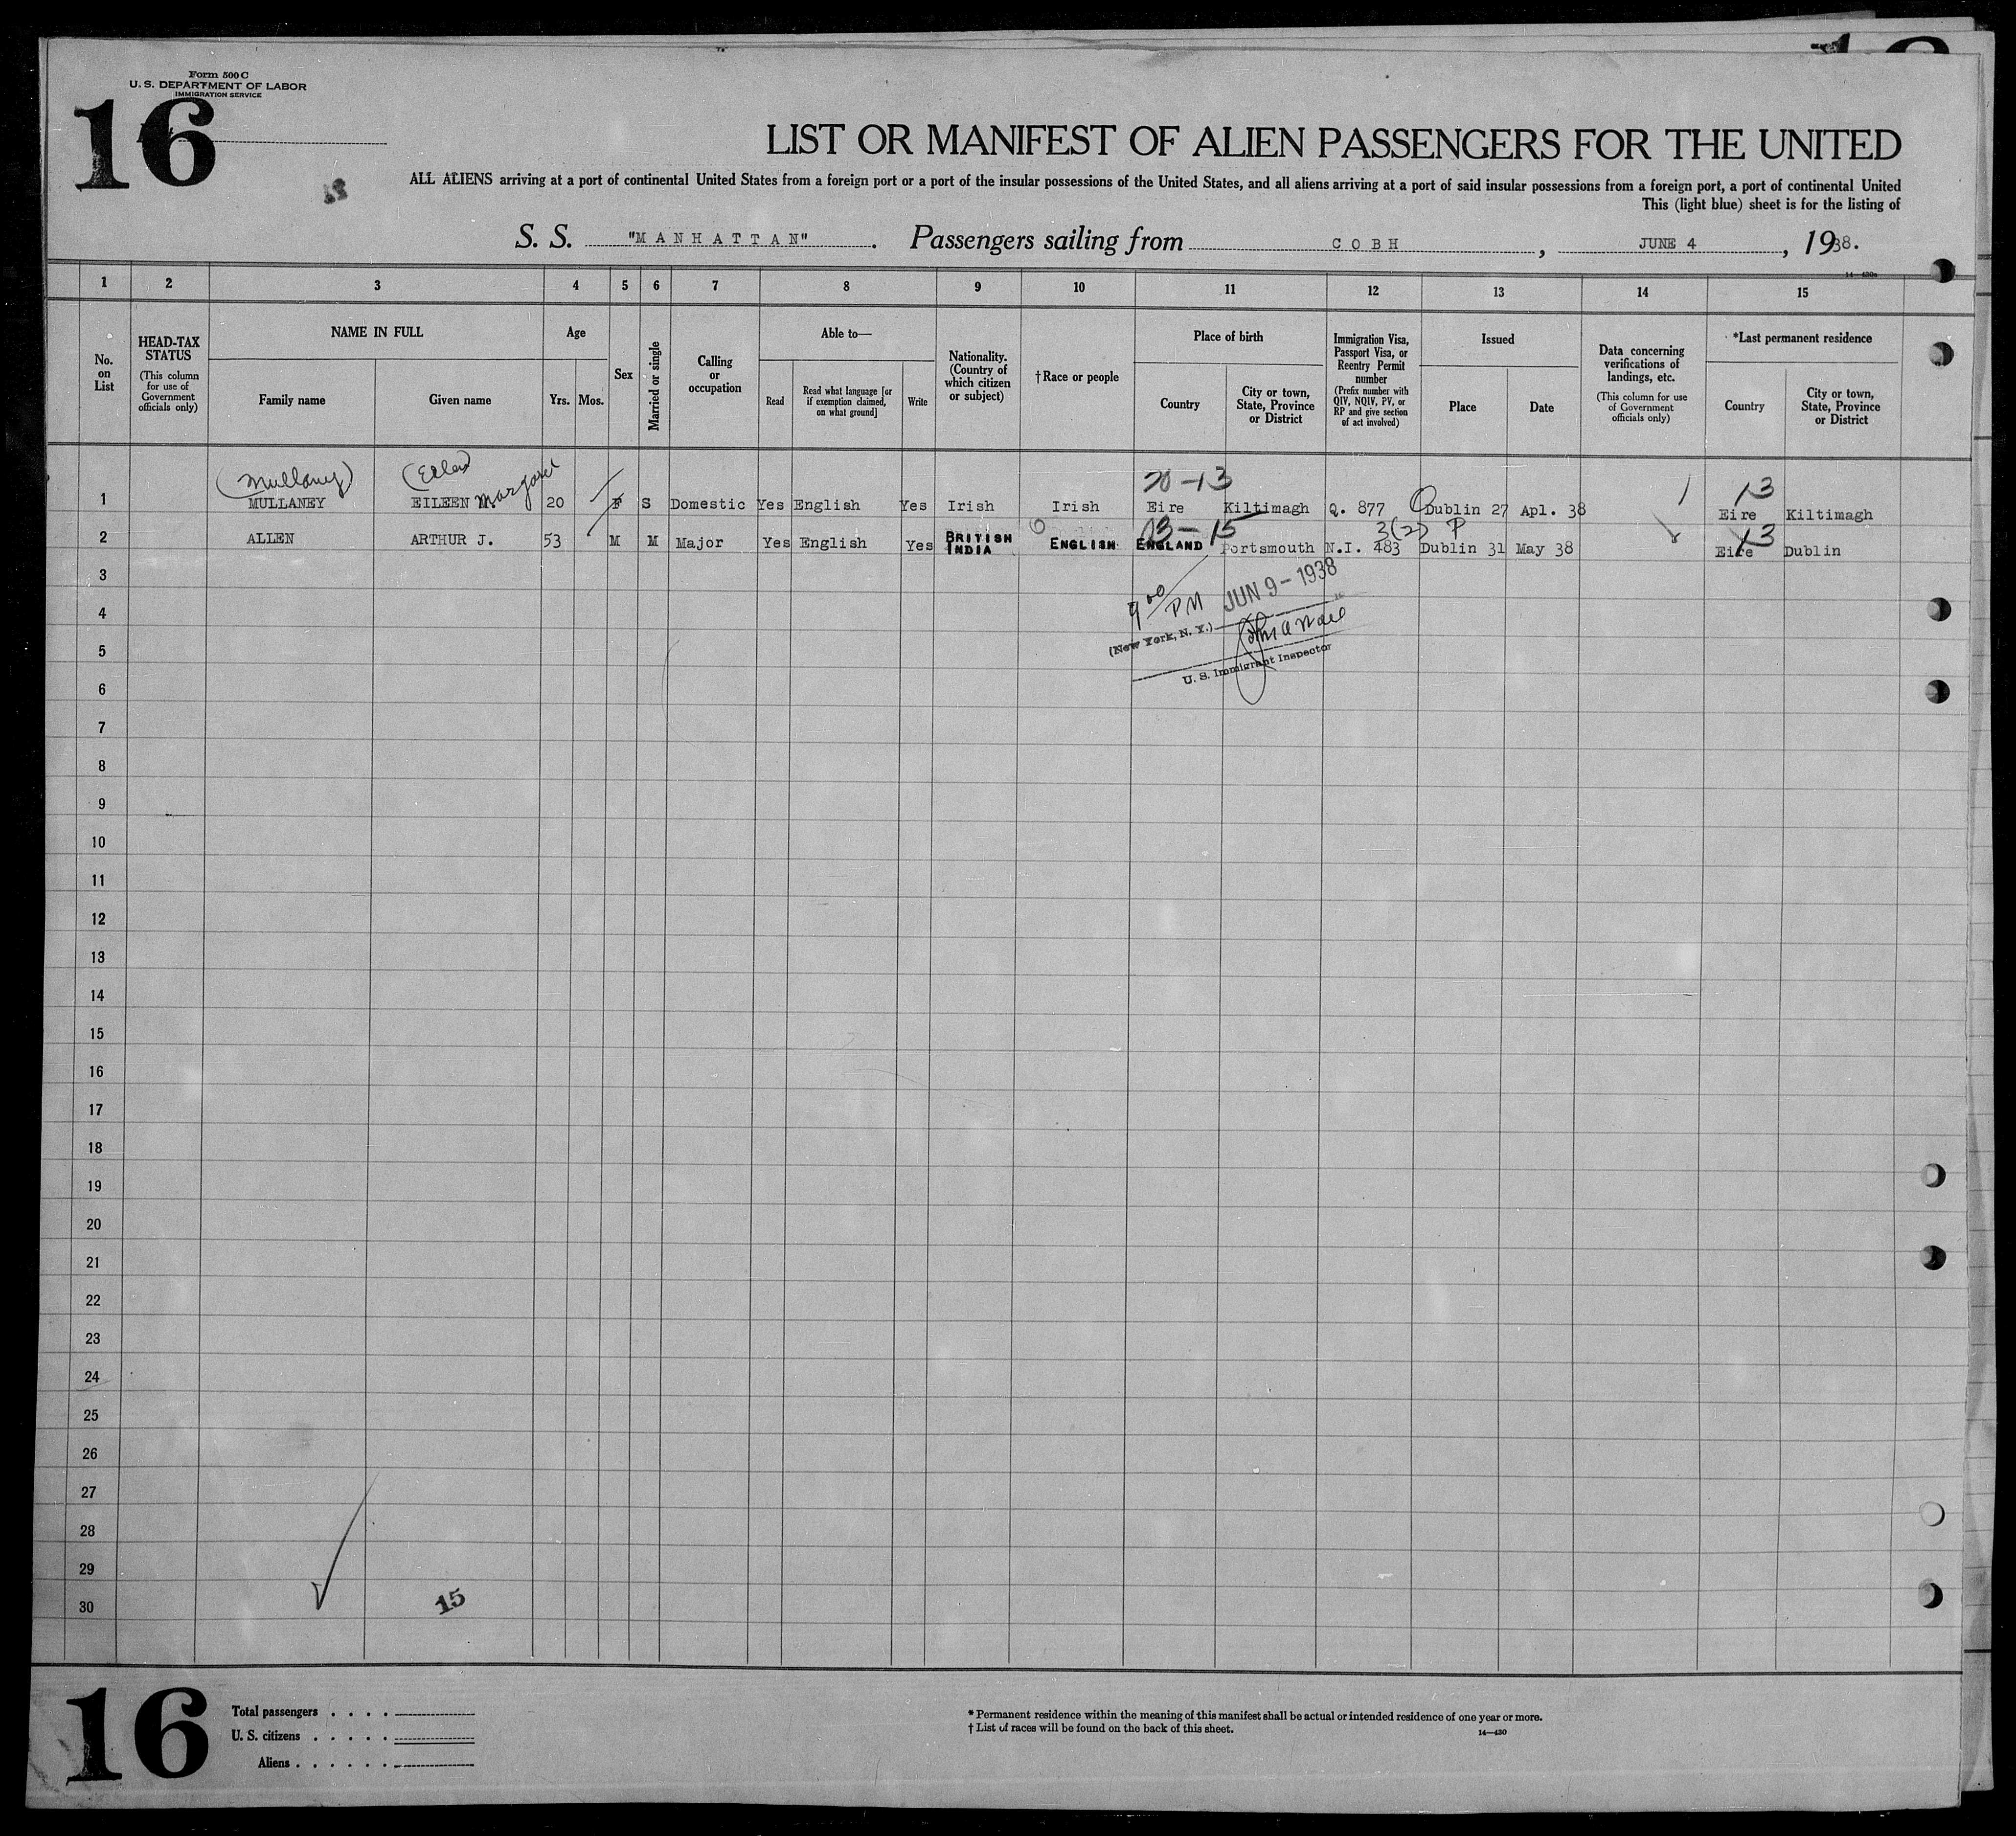 Form 500 C
U. S. DEPARTMENT OF LABOR
IMMIGRATION SERVICE
16
LIST OR MANIFEST OF ALIEN PASSENGERS FOR THE UNITED
ALL ALIENS arriving at a port of continental United States from a foreign port or a port of the insular possessions of the United States, and all aliens arriving at a port of said insular possessions from a foreign port, a port of continental United
This (light blue) sheet is for the listing of
S. S. "MANHATTAN". Passengers sailing from COBH, JUNE 4, 1938.
1 2 3 4 5 6 7 8 9 10 11 12 13 14 15
No. on List
HEAD-TAX STATUS
(This column for use of Government officials only)
NAME IN FULL
Family name
Given name
Age
Yrs.
Mos.
Sex
Married or single
Calling or occupation
Able to—
Read
Read what language [or if exemption claimed, on what ground]
Write
Nationality. (Country of which citizen or subject)
†Race or people
Place of birth
Country
City or town, State, Province or District
Immigration Visa, Passport Visa, or Reentry Permit number
(Prefix number with QIV, NQIV, PV, or RP and give section of act involved)
Issued
Place
Date
Data concerning verifications of landings, etc.
(This column for use of Government officials only)
*Last permanent residence
Country
City or town, State, Province or District
(Mullany) (Ellen) 20-13 13
1 MULLANEY EILEEN M. Margaret 20 F S Domestic Yes English Yes Irish Irish Eire Kiltimagh Q. 877 Dublin 27 Apl. 38 Eire Kiltimagh
13-15 3(2) P 13
2 ALLEN ARTHUR J. 53 M M Major Yes English Yes BRITISH INDIA ENGLISH ENGLAND Portsmouth N.I. 483 Dublin 31 May 38 Eire Dublin
3
9 00 PM JUN 9-1938
4
(New York, N. Y.)
5
U. S. Immigrant Inspector
6
7
8
9
10
11
12
13
14
15
16
17
18
19
20
21
22
23
24
25
26
27
28
29
30
15
16
Total passengers
U. S. citizens
Aliens
* Permanent residence within the meaning of this manifest shall be actual or intended residence of one year or more.
† List of races will be found on the back of this sheet.
14—430